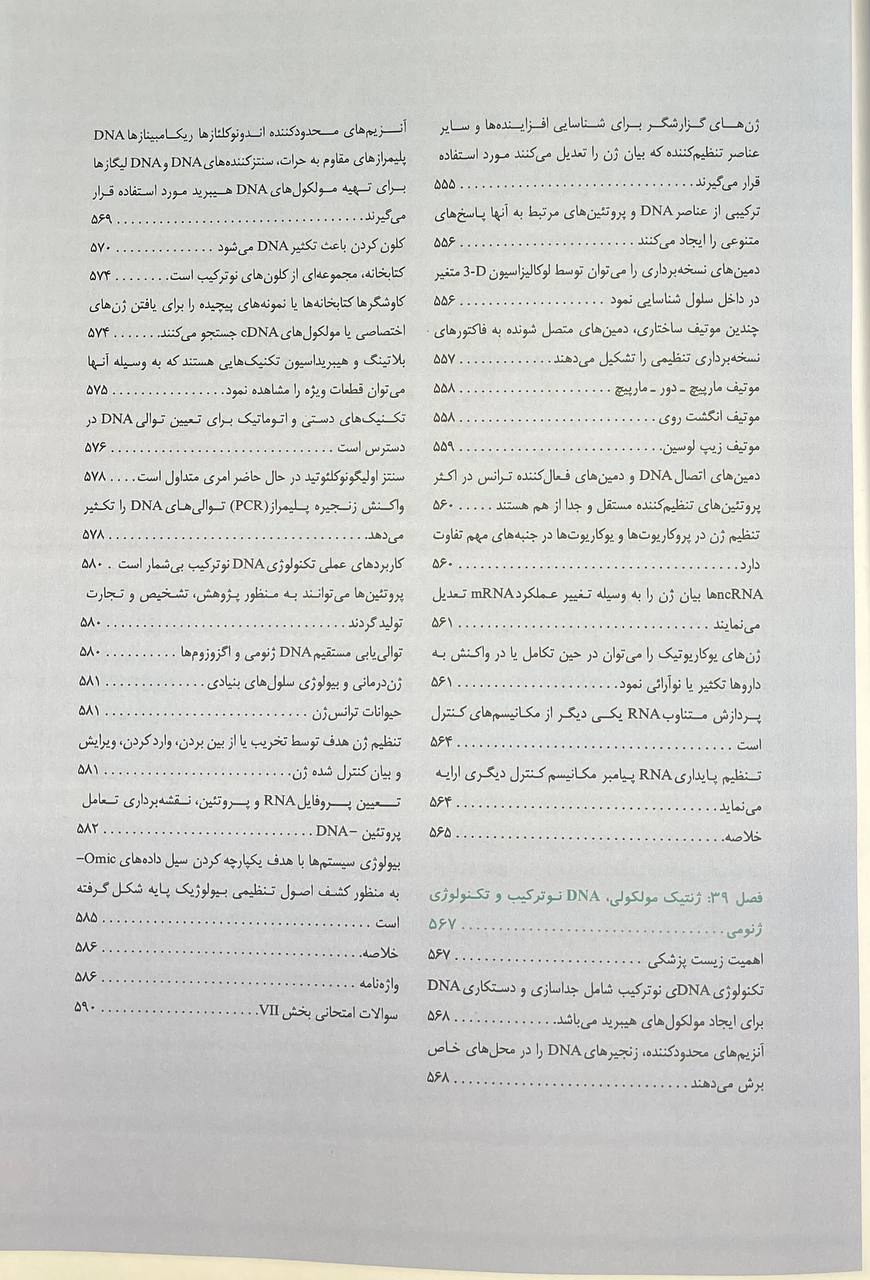 ژن‌های گزارشگر برای شناسایی افزاینده‌ها و سایر
عناصر تنظیم‌کننده که بیان ژن را تعدیل می‌کنند مورد استفاده
قرار می‌گیرند. . . . . . . . . . . . . . . . . . . . . . . . . . . . . . . ۵۵۵
ترکیبی از عناصر DNA و پروتئین‌های مرتبط به آنها پاسخ‌های
متنوعی را ایجاد می‌کنند . . . . . . . . . . . . . . . . . . . . . . . ۵۵۶
دمین‌های نسخه‌برداری را می‌توان توسط لوکالیزاسیون 3-D متغیر
در داخل سلول شناسایی نمود . . . . . . . . . . . . . . . . . . . ۵۵۶
چندین موتیف ساختاری، دمین‌های متصل شونده به فاکتورهای
نسخه‌برداری تنظیمی را تشکیل می‌دهند. . . . . . . . . . . . ۵۵۷
موتیف مارپیچ ـ دور ـ مارپیچ . . . . . . . . . . . . . . . . . . . . ۵۵۸
موتیف انگشت روی. . . . . . . . . . . . . . . . . . . . . . . . . . ۵۵۸
موتیف زیپ لوسین. . . . . . . . . . . . . . . . . . . . . . . . . . ۵۵۹
دمین‌های اتصال DNA و دمین‌های فعال‌کننده ترانس در اکثر
پروتئین‌های تنظیم‌کننده مستقل و جدا از هم هستند . . . . . ۵۶۰
تنظیم ژن در پروکاریوت‌ها و یوکاریوت‌ها در جنبه‌های مهم تفاوت
دارد. . . . . . . . . . . . . . . . . . . . . . . . . . . . . . . . . . . . . ۵۶۰
ncRNAها بیان ژن را به وسیله تغییر عملکرد mRNA تعدیل
می‌نمایند . . . . . . . . . . . . . . . . . . . . . . . . . . . . . . . . . ۵۶۱
ژن‌های یوکاریوتیک را می‌توان در حین تکامل یا در واکنش به
داروها تکثیر یا نوآرائی نمود. . . . . . . . . . . . . . . . . . . . . ۵۶۱
پردازش متناوب RNA یکی دیگر از مکانیسم‌های کنترل
است . . . . . . . . . . . . . . . . . . . . . . . . . . . . . . . . . . . . ۵۶۴
تنظیم پایداری RNA پیامبر مکانیسم کنترل دیگری ارایه
می‌نماید. . . . . . . . . . . . . . . . . . . . . . . . . . . . . . . . . . ۵۶۴
خلاصه. . . . . . . . . . . . . . . . . . . . . . . . . . . . . . . . . . . ۵۶۵
فصل ۳۹: ژنتیک مولکولی، DNA نوترکیب و تکنولوژی
ژنومی. . . . . . . . . . . . . . . . . . . . . . . . . . . . . . . . . . . ۵۶۷
اهمیت زیست پزشکی . . . . . . . . . . . . . . . . . . . . . . . ۵۶۷
تکنولوژی DNAی نوترکیب شامل جداسازی و دستکاری DNA
برای ایجاد مولکول‌های هیبرید می‌باشد. . . . . . . . . . . . . ۵۶۸
آنزیم‌های محدودکننده، زنجیرهای DNA را در محل‌های خاص
برش می‌دهند . . . . . . . . . . . . . . . . . . . . . . . . . . . . . . ۵۶۸
آنزیم‌های محدودکننده اندونوکلئازها ریکامبینازها DNA
پلیمرازهای مقاوم به حرات، سنتزکننده‌های DNA و DNA لیگازها
برای تهیه مولکول‌های DNA هیبرید مورد استفاده قرار
می‌گیرند. . . . . . . . . . . . . . . . . . . . . . . . . . . . . . . . ۵۶۹
کلون کردن باعث تکثیر DNA می‌شود . . . . . . . . . . . . . ۵۷۰
کتابخانه، مجموعه‌ای از کلون‌های نوترکیب است. . . . . . . ۵۷۴
کاوشگرها کتابخانه‌ها یا نمونه‌های پیچیده را برای یافتن ژن‌های
اختصاصی یا مولکول‌های cDNA جستجو می‌کنند. . . . . . . ۵۷۴
بلاتینگ و هیبریداسیون تکنیک‌هایی هستند که به وسیله آنها
می‌توان قطعات ویژه را مشاهده نمود. . . . . . . . . . . . . . . ۵۷۵
تکنیک‌های دستی و اتوماتیک برای تعیین توالی DNA در
دسترس است . . . . . . . . . . . . . . . . . . . . . . . . . . . . . ۵۷۶
سنتز اولیگونوکلئوتید در حال حاضر امری متداول است. . . . ۵۷۸
واکنش زنجیره پلیمراز (PCR) توالی‌های DNA را تکثیر
می‌دهد. . . . . . . . . . . . . . . . . . . . . . . . . . . . . . . . . . . ۵۷۸
کاربردهای عملی تکنولوژی DNA نوترکیب بی‌شمار است . ۵۸۰
پروتئین‌ها می‌توانند به منظور پژوهش، تشخیص و تجارت
تولید گردند . . . . . . . . . . . . . . . . . . . . . . . . . . . . . . . ۵۸۰
توالی‌یابی مستقیم DNA ژنومی و اگزوزوم‌ها . . . . . . . . . . ۵۸۰
ژن‌درمانی و بیولوژی سلول‌های بنیادی. . . . . . . . . . . . . . ۵۸۱
حیوانات ترانس‌ژن . . . . . . . . . . . . . . . . . . . . . . . . . . . ۵۸۱
تنظیم ژن هدف توسط تخریب یا از بین بردن، وارد کردن، ویرایش
و بیان کنترل شده ژن. . . . . . . . . . . . . . . . . . . . . . . . . ۵۸۱
تعیین پروفایل RNA و پروتئین، نقشه‌برداری تعامل
پروتئین –DNA . . . . . . . . . . . . . . . . . . . . . . . . . . . . ۵۸۲
بیولوژی سیستم‌ها با هدف یکپارچه کردن سیل داده‌های Omic–
به منظور کشف اصول تنظیمی بیولوژیک پایه شکل گرفته
است . . . . . . . . . . . . . . . . . . . . . . . . . . . . . . . . . . . ۵۸۵
خلاصه. . . . . . . . . . . . . . . . . . . . . . . . . . . . . . . . . . ۵۸۶
واژه‌نامه . . . . . . . . . . . . . . . . . . . . . . . . . . . . . . . . . ۵۸۶
سوالات امتحانی بخش VII. . . . . . . . . . . . . . . . . . . . . ۵۹۰